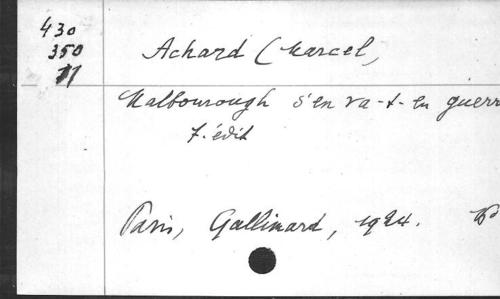 430
350
11
Achard (Marcel,
Malbourough s'en va-t-en guerr
7. édit
Paris, Gallimard, 1924.